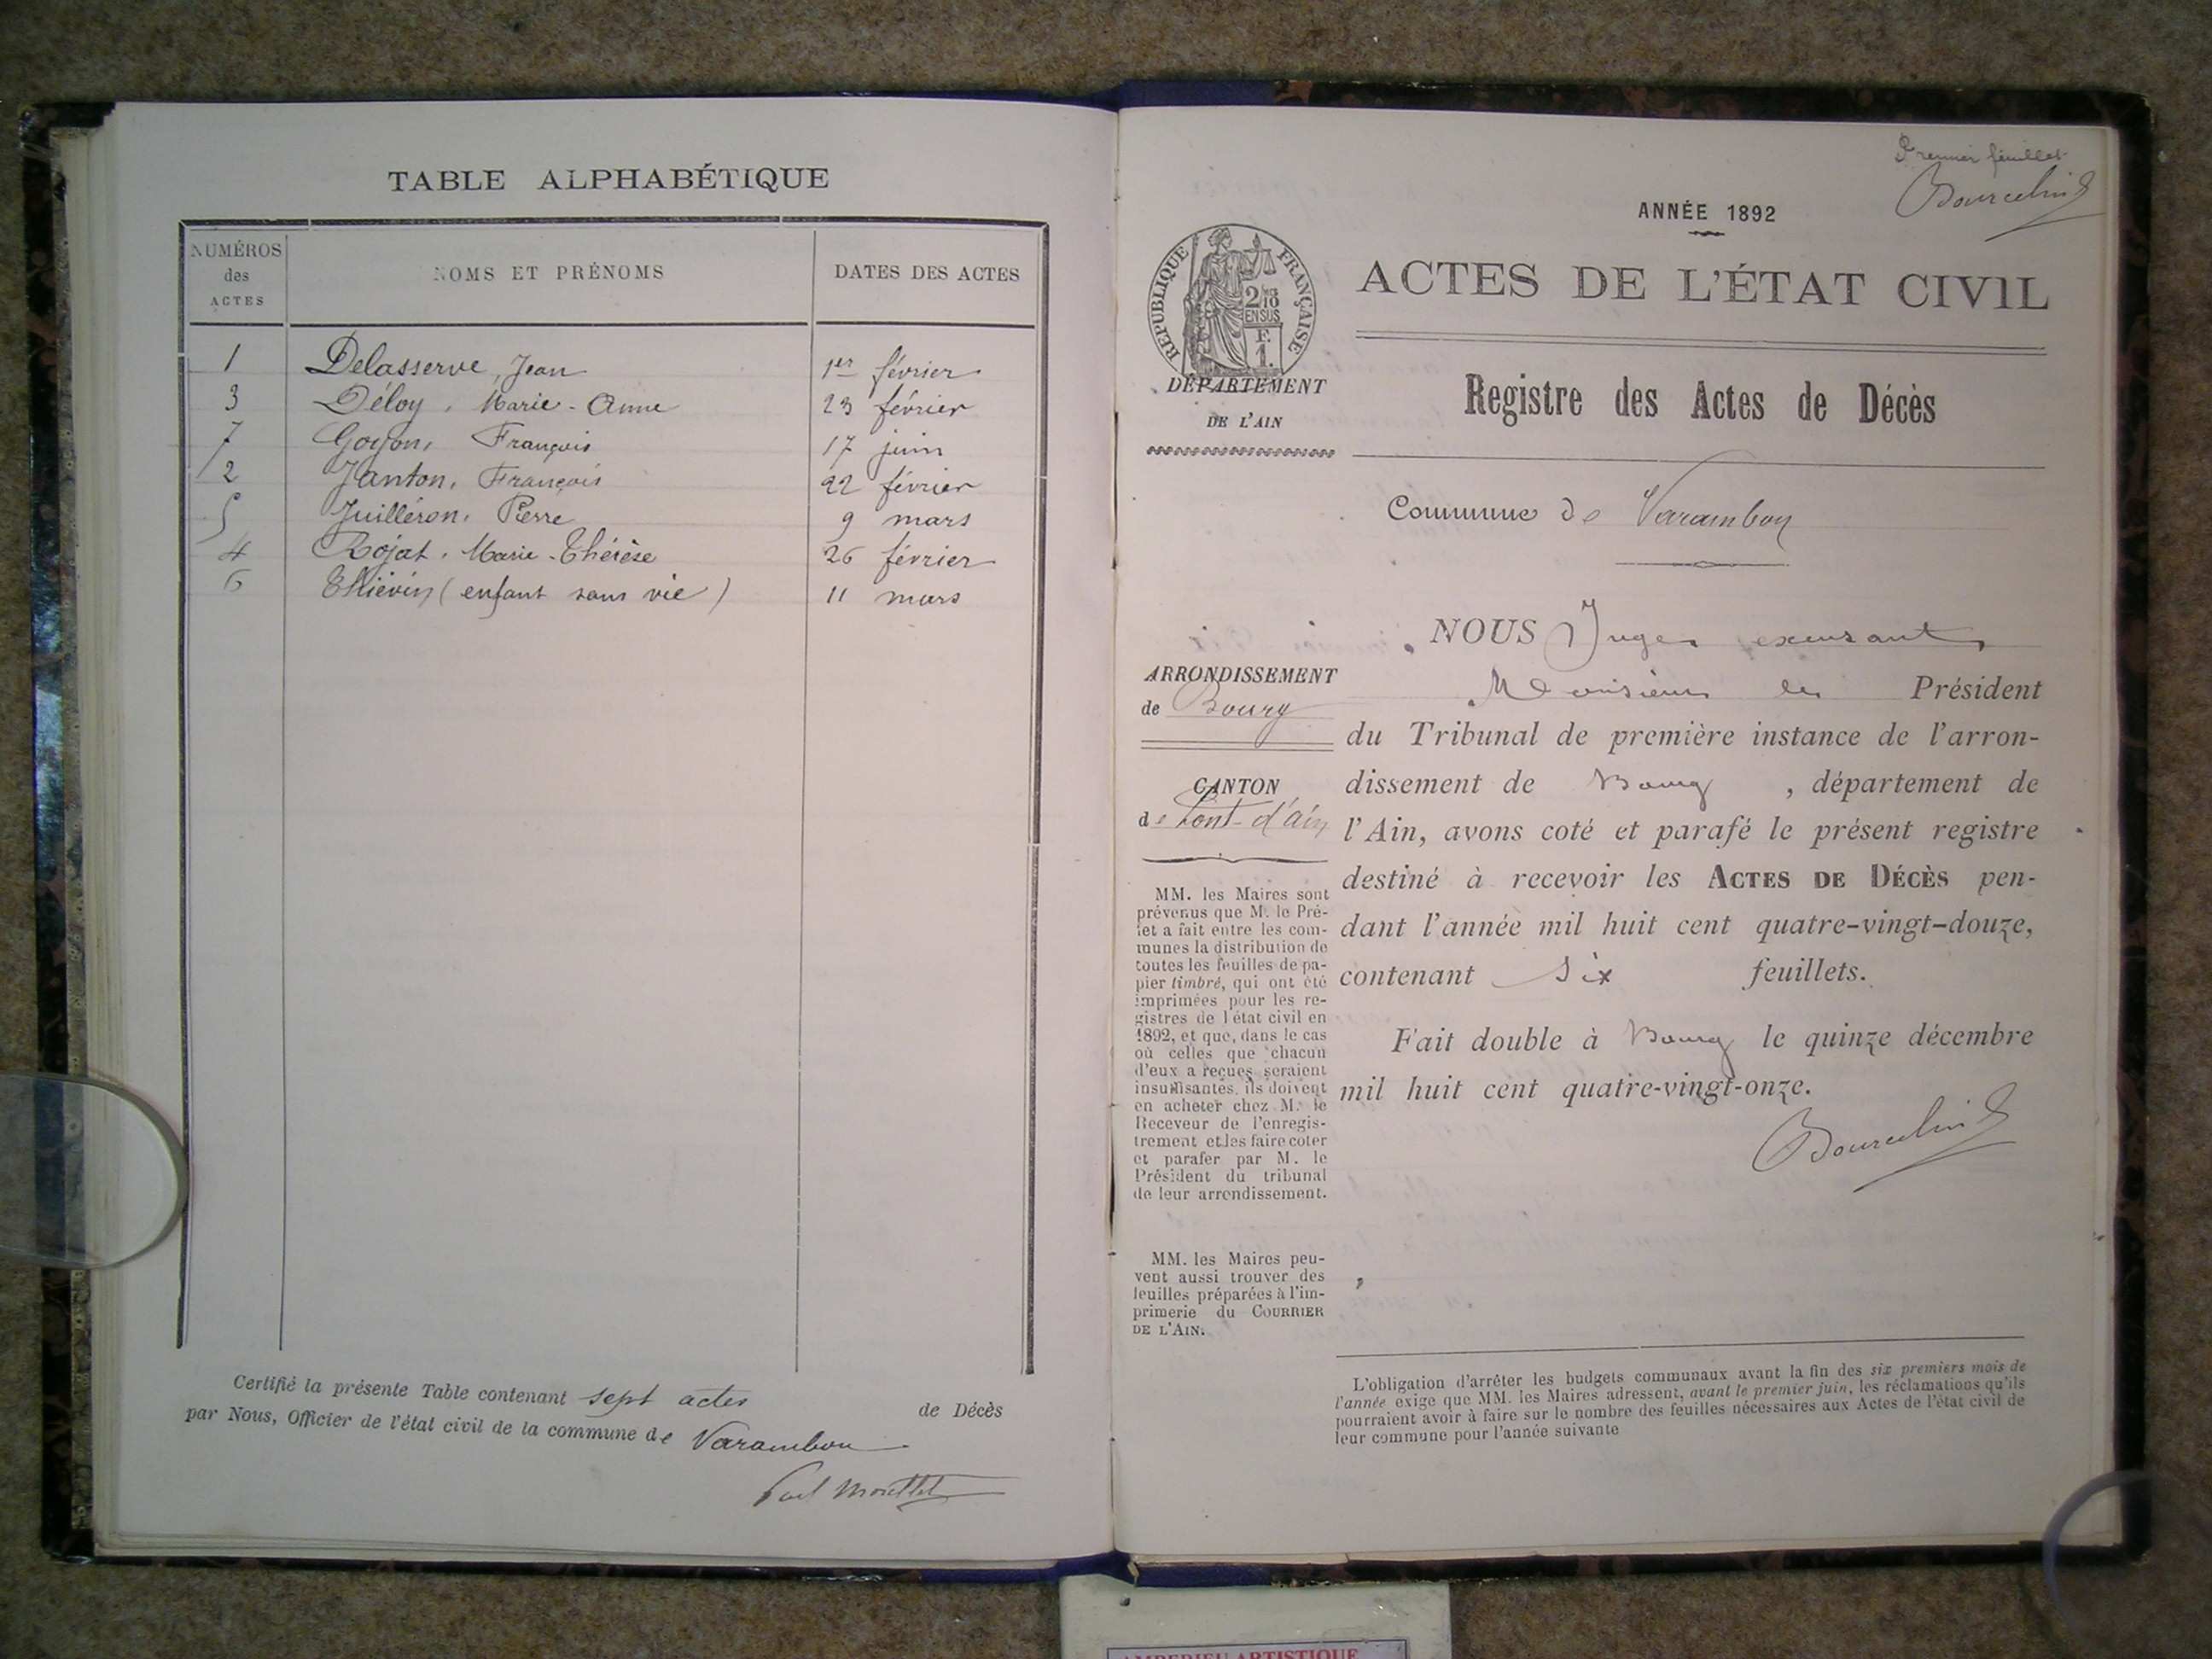 TABLE ALPHABÉTIQUE
NUMÉROS des ACTES
NOMS ET PRÉNOMS
DATES DES ACTES
1 Delasserve, Jean 1er février
3 Déloy, Marie-Anne 23 février
7 Goyon, François 17 juin
2 Janton, François 22 février
5 Juilléron, Pierre 9 mars
4 Rojat, Marie-Thérèse 26 février
6 Thiévin (enfant sans vie) 11 mars
Certifié la présente Table contenant sept actes de Décès
par Nous, Officier de l'état civil de la commune de Varambon
Premier feuillet
ANNÉE 1892
RÉPUBLIQUE FRANÇAISE
2/10
EN SUS
F.
1.
ACTES DE L'ÉTAT CIVIL
DÉPARTEMENT
DE L'AIN
Registre des Actes de Décès
Commune de Varambon
NOUS Juge
ARRONDISSEMENT
de Bourg
Monsieur le Président
du Tribunal de première instance de l'arron-
dissement de Bourg, département de
l'Ain, avons coté et parafé le présent registre
destiné à recevoir les ACTES DE DÉCÈS pen-
dant l'année mil huit cent quatre-vingt-douze,
contenant six feuillets.
Fait double à Bourg le quinze décembre
mil huit cent quatre-vingt-onze.
CANTON
de Pont-d'ain
MM. les Maires sont
prévenus que M. le Pré-
fet a fait entre les com-
munes la distribution de
toutes les feuilles de pa-
pier timbré, qui ont été
imprimées pour les re-
gistres de l'état civil en
1892, et que, dans le cas
où celles que chacun
d'eux a reçues seraient
insuffisantes, ils doivent
en acheter chez M. le
Receveur de l'enregis-
trement et les faire coter
et parafer par M. le
Président du tribunal
de leur arrondissement.
MM. les Maires peu-
vent aussi trouver des
feuilles préparées à l'im-
primerie du COURRIER
DE L'AIN.
L'obligation d'arrêter les budgets communaux avant la fin des six premiers mois de
l'année exige que MM. les Maires adressent, avant le premier juin, les réclamations qu'ils
pourraient avoir à faire sur le nombre des feuilles nécessaires aux Actes de l'état civil de
leur commune pour l'année suivante
AMBERIEU ARTISTIQUE